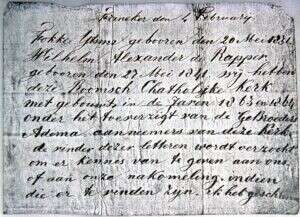 Franeker den 4 February
Fokke Ypma geboren den 20 Mei 1831
Wilhelm Alexander de Ropper
geboren den 27 Mei 1841 wij hebben
deze Roomsch Chatholyke Kerk
met gebouwt in de Jaren 1863 en 1864
onder het toeverzigt van de Gebroeders
Adema aannemers van deze kerk
de vinder dezer letteren wordt verzocht
om er kennes van te geven aan ons
of aan onze nakomeling indien
die er te vinden zyn ik heb geschr